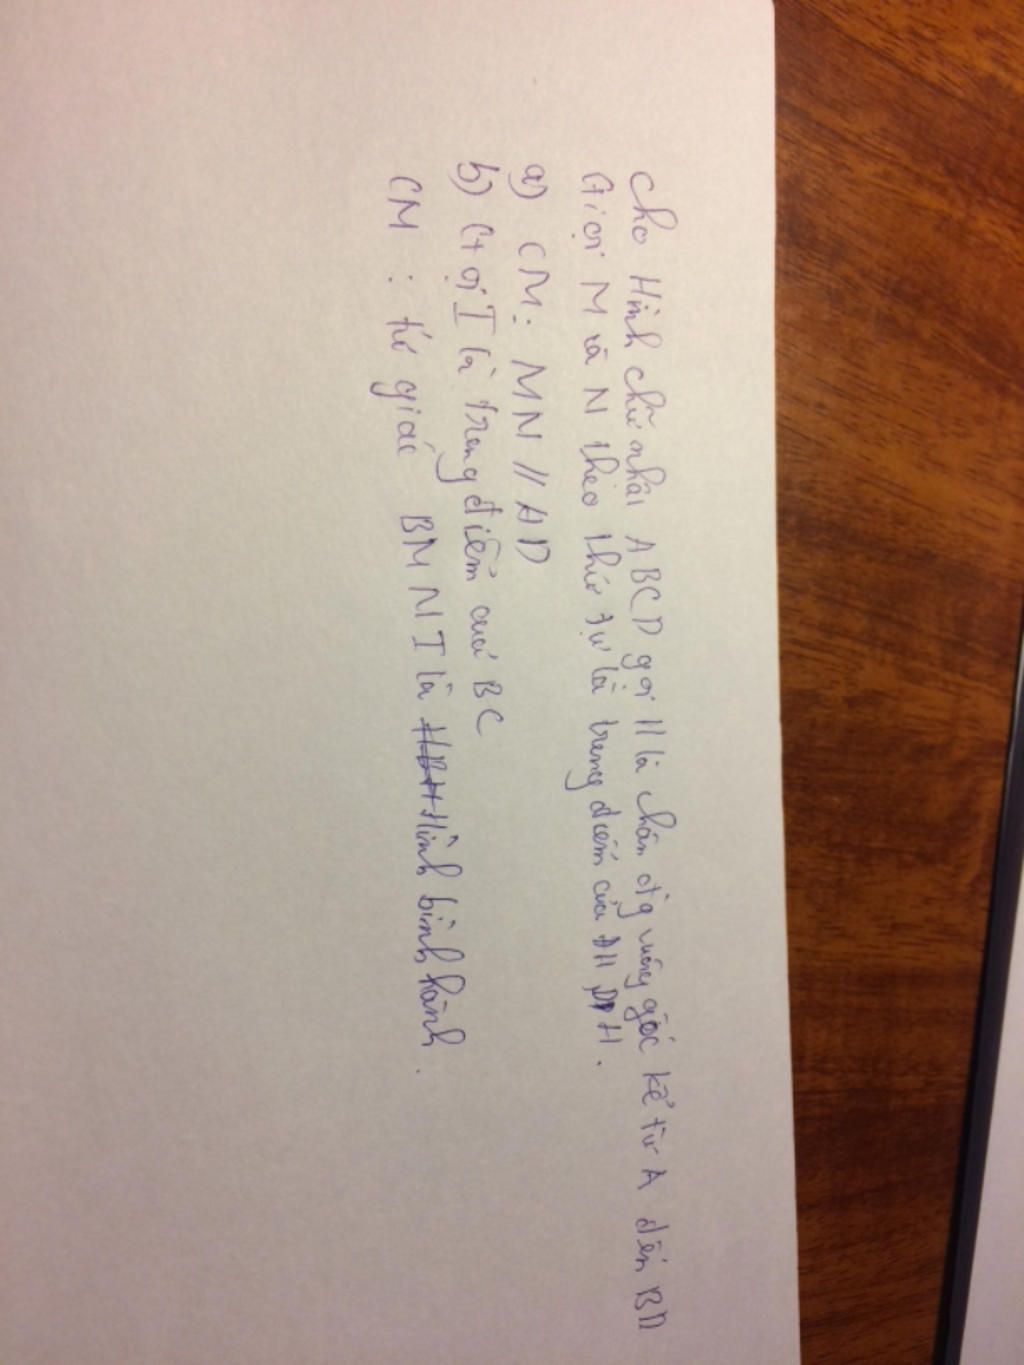 Cho Hình chữ nhật ABCD gọi H là chân đg vuông góc kẻ từ A đến BD
Gọi M và N theo thứ tự là trung điểm của AH, DH.
a) CM: MN // AD
b) Gọi I là trung điểm của BC
CM : tứ giác BMNI là Hình bình hành.